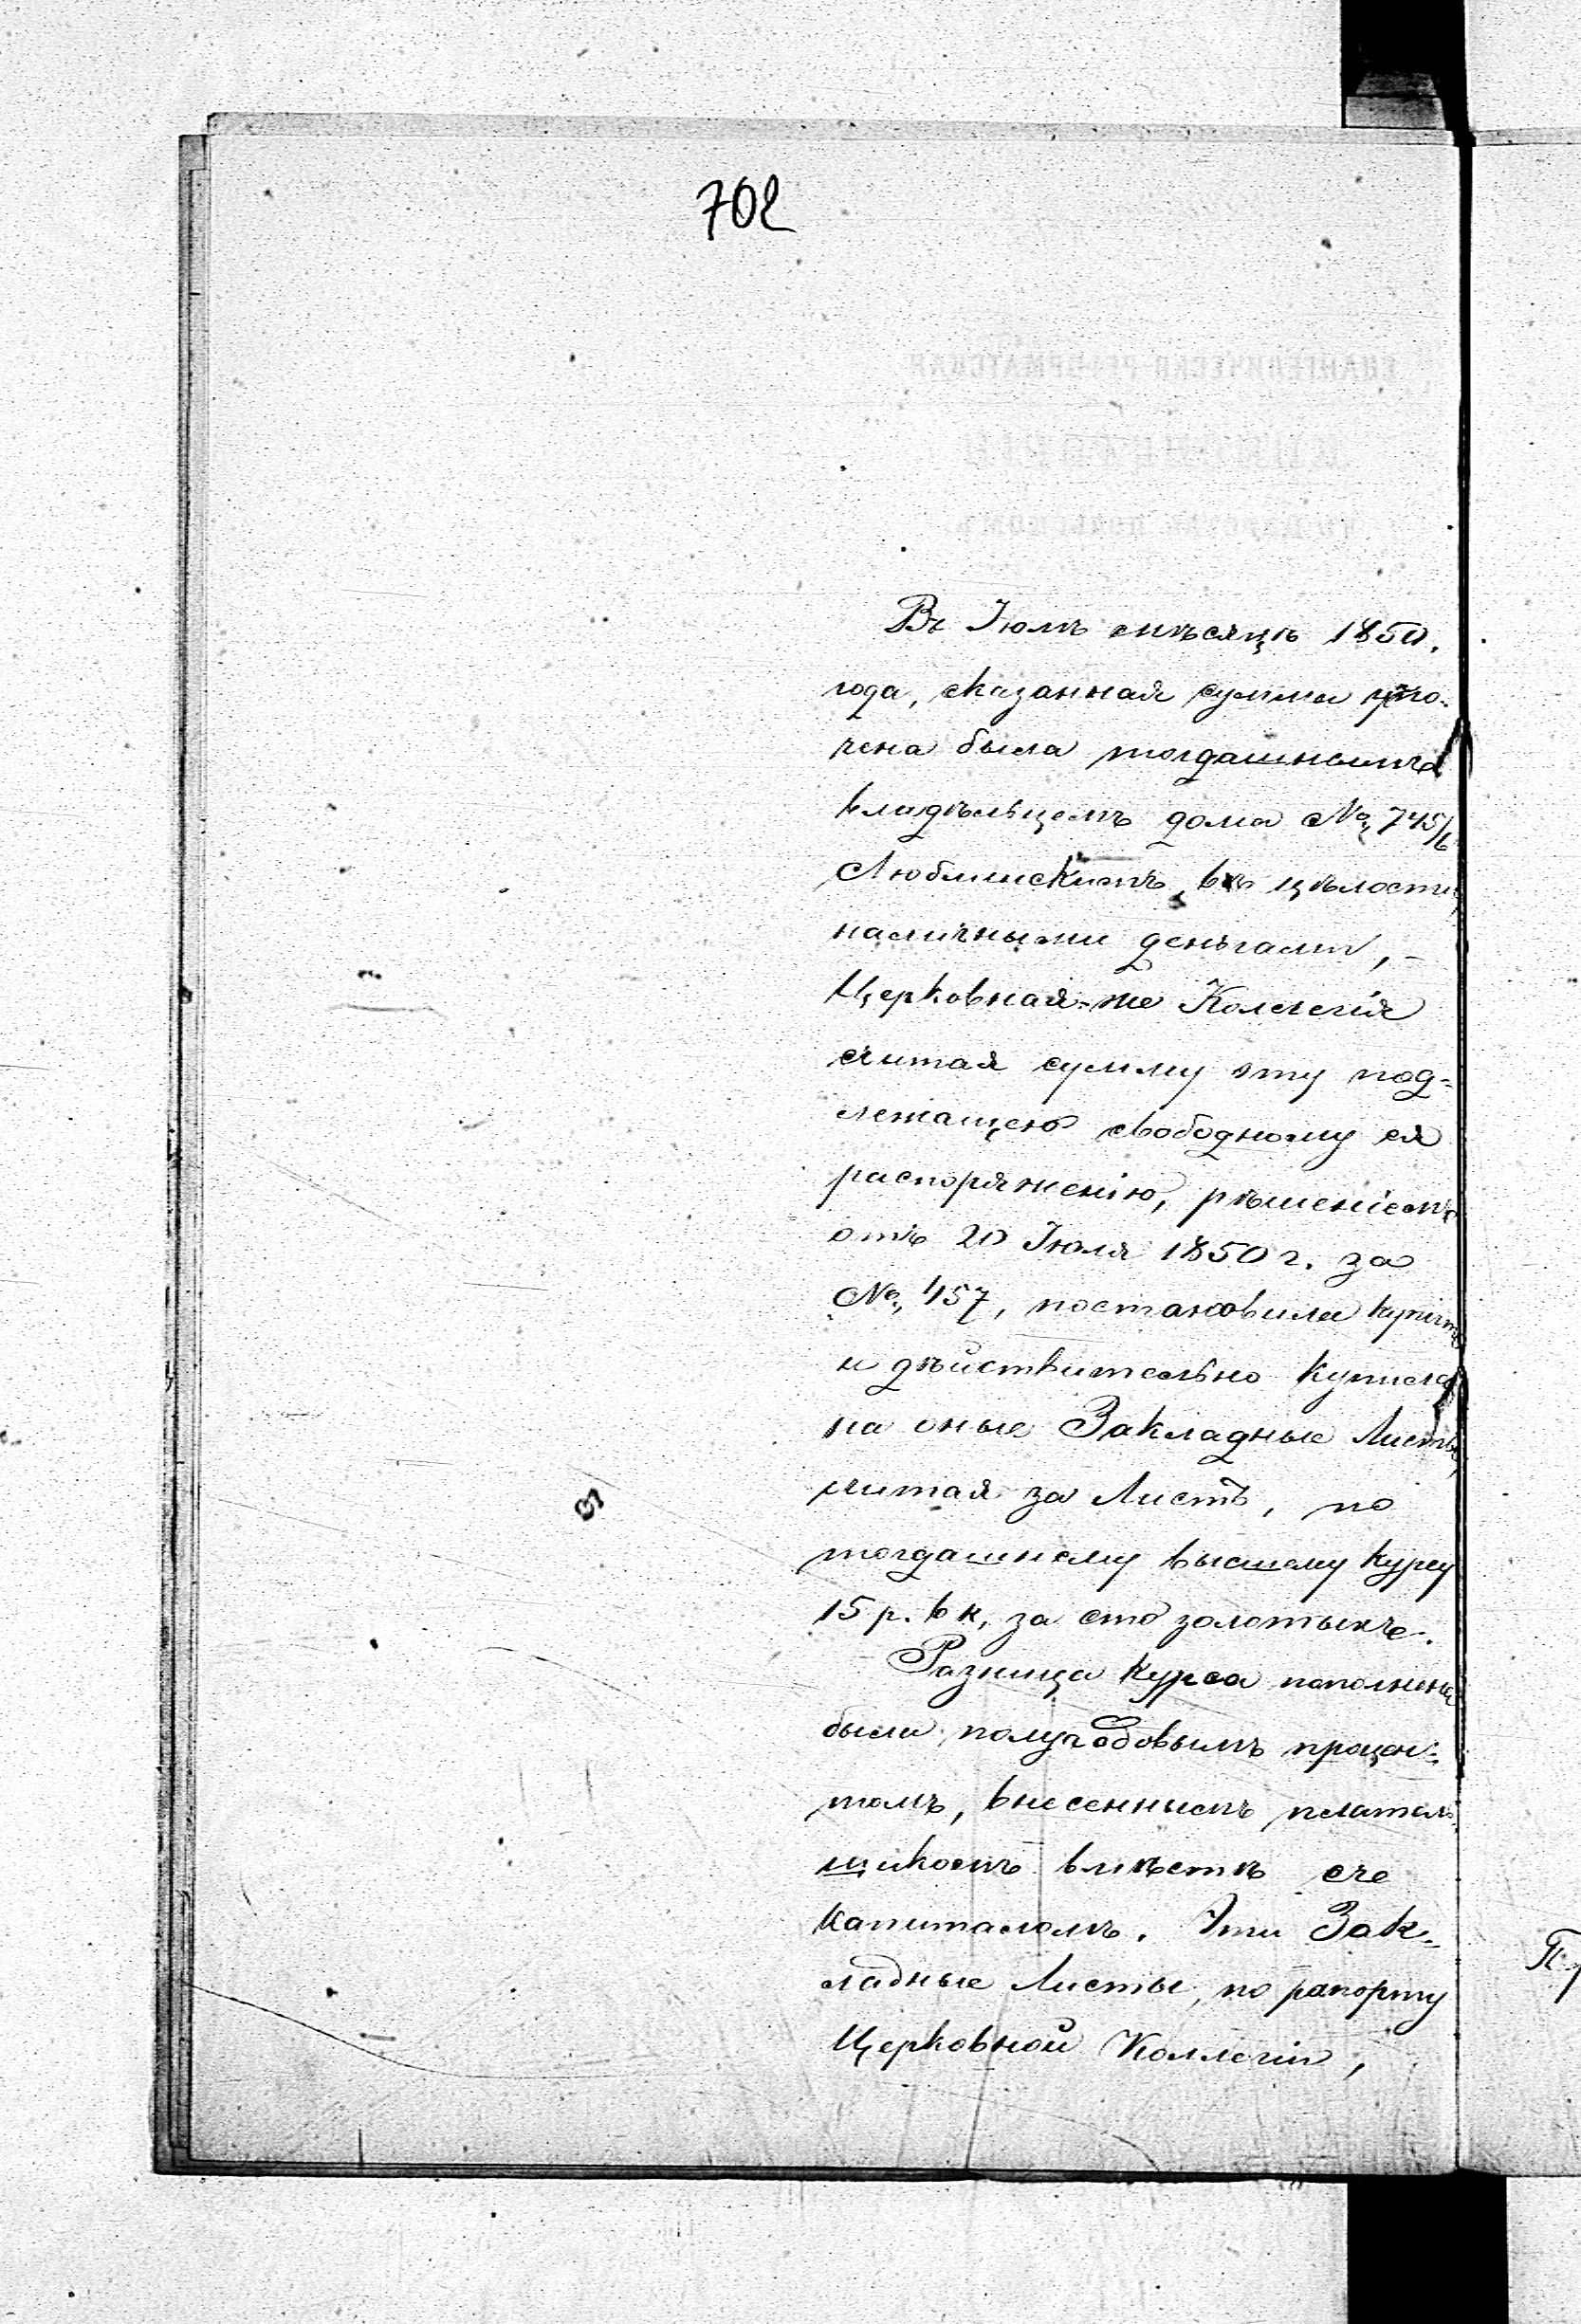 702
Въ Іюлѣ мѣсяцѣ 1850.
года, сказанная сумма упло-
чена была тогдашнимъ
владѣльцемъ дома №, 745/6
Люблинскимъ, въ цѣлости,
наличными деньгами, -
Церковная-же Коллегія
считая сумму эту под-
лежащею свободному ея
распоряженію, рѣшеніемъ
отъ 20 Іюля 1850 г. за
№, 157, постановила купить
и дѣйствительно купила
на оные Закладные Листы,
считая за Листъ, по
тогдашнему высшему курсу
15 р. 6 к, за сто золотыхъ.
Разница курса пополнена
была полугодовымъ процен-
томъ, внесеннымъ платель-
щикомъ вмѣстѣ съ
капиталомъ. Эти Зак-
ладные Листы, по рапорту
Церковной Коллегіи,